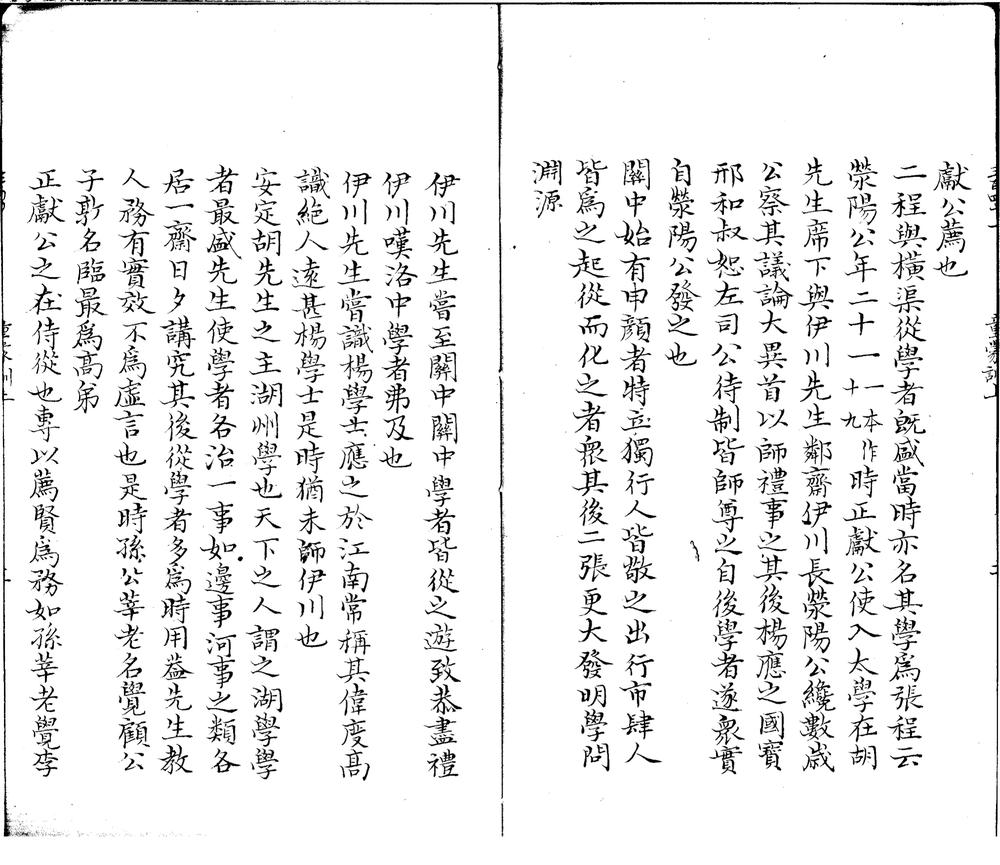 獻公薦也
二程與橫渠從學者既盛當時亦名其學爲張程云
滎陽公年二十一一本作十九時正獻公使入太學在胡
先生席下與伊川先生鄰齋伊川長滎陽公纔數歲
公察其議論大異首以師禮事之其後楊應之國寶
邢和叔恕左司公待制皆師尊之自後學者遂衆實
自滎陽公發之也
關中始有申顏者特立獨行人皆敬之出行市肆人
皆爲之起從而化之者衆其後二張更大發明學問
淵源
伊川先生嘗至關中關中學者皆從之遊致恭盡禮
伊川嘆洛中學者弗及也
伊川先生嘗識楊學士應之於江南常稱其偉度高
識絕人遠甚楊學士是時猶未師伊川也
安定胡先生之主湖州學也天下之人謂之湖學學
者最盛先生使學者各治一事如邊事河事之類各
居一齋日夕講究其後從學者多爲時用葢先生教
人務有實效不爲虛言也是時孫公莘老名覺顧公
子敦名臨最爲高弟
正獻公之在侍從也專以薦賢爲務如孫莘老覺李